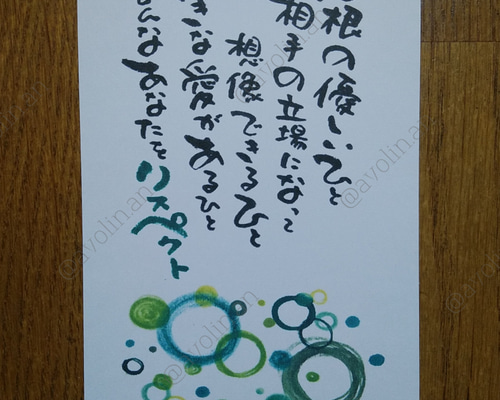 根の優しいひと
相手の立場になって
想像できるひと
きな愛があるひと
んなあなたを
リスペクト
@avolinan